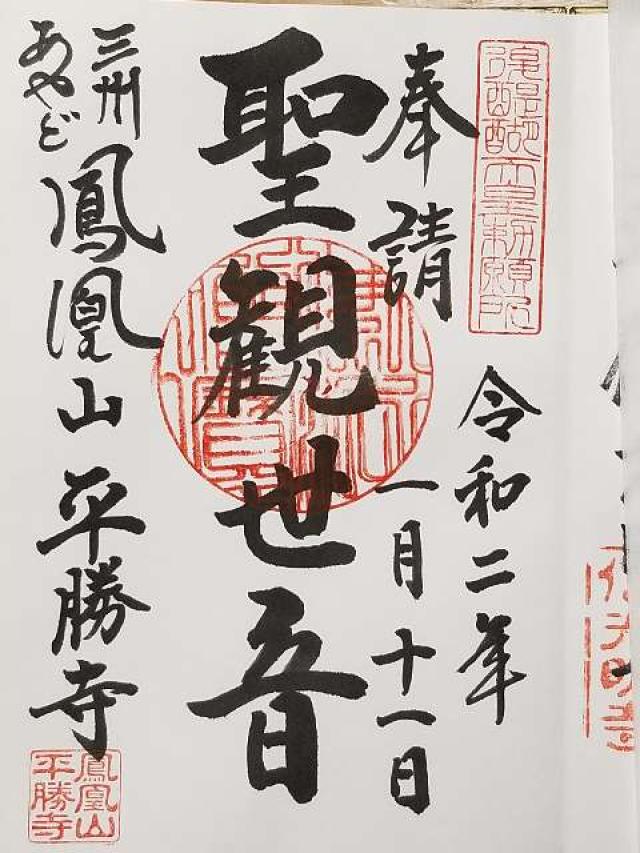 後醍醐天皇勅願所
令和二年
奉請
一月十一日
聖観世音
三州
あやど
鳳凰山平勝寺
鳳凰山
平勝寺